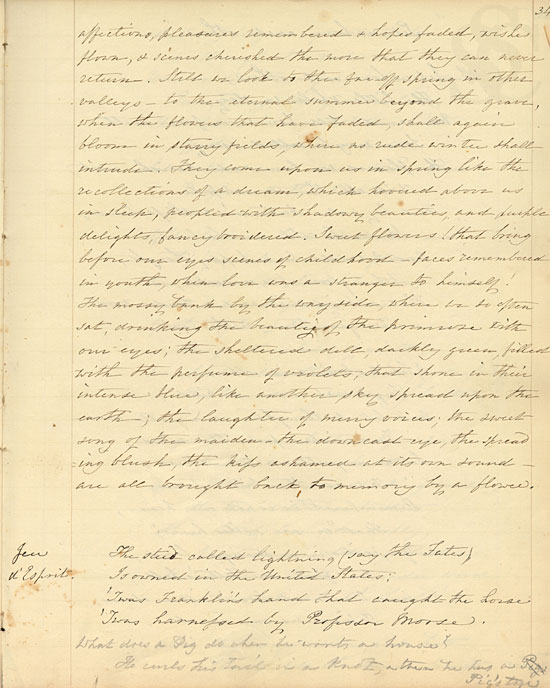 34
affections, pleasures remembered & hopes faded, wishes
flown, & scenes cherished the more that they can never
return. Still we look to the far off spring in other
valleys – to the eternal summer beyond the grave,
when the flowers that have faded, shall again
bloom in starry fields, where no rude winter shall
intrude. They come upon us in spring like the
recollections of a dream, which hovered above us
in sleep, peopled with shadowy beauties, and purple
delights, fancy broidered. Sweet flowers! that bring
before our eyes scenes of childhood – faces remembered
in youth, when love was a stranger to himself!
The mossy bank by the wayside, where we so often
sat, drinking the beauty of the primrose with
our eyes; the sheltered dell, darkly green, filled
with the perfume of violets, that shone in their
intense blue, like another sky spread upon the
earth – ; the laughter of merry voices; the sweet
song of the maiden – the downcast eye, the spread
ing blush, the kiss ashamed at its own sound –
are all brought back to memory by a flower.
Jeu
d'Esprit.
The steed called lightning (say the Fates)
Is owned in the United States:
'Twas Franklin's hand that caught the horse
'Twas harnessed by Professor Morse.
What does a Pig do when he wants a house?
He curls his tail in a Knot, & then he has a Pig
Pig's tye